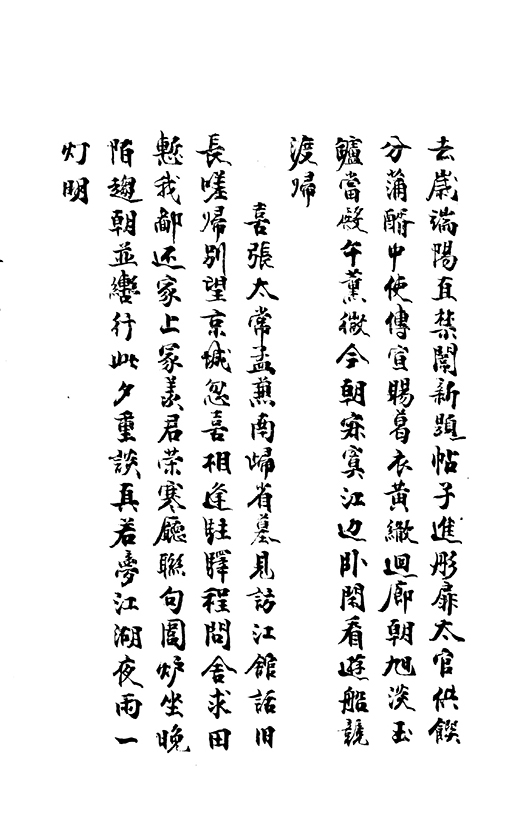 去歳端陽直禁闈新題帖子進彤扉太官供饌
分蒲醑中使傳宣賜葛衣黄繖迴廊朝旭淡玉
鑪當殿午薰微今朝寂寞江边卧閑看遊船競
渡帰
喜張太常孟兼南帰省墓見訪江館話旧
長嗟帰別望京城忽喜相逢駐驛程問舍求田
慙我鄙还家上冢羡君荣寒廳聯句圍炉坐晚
陌趨朝並轡行此夕重談真若夢江湖夜雨一
灯明